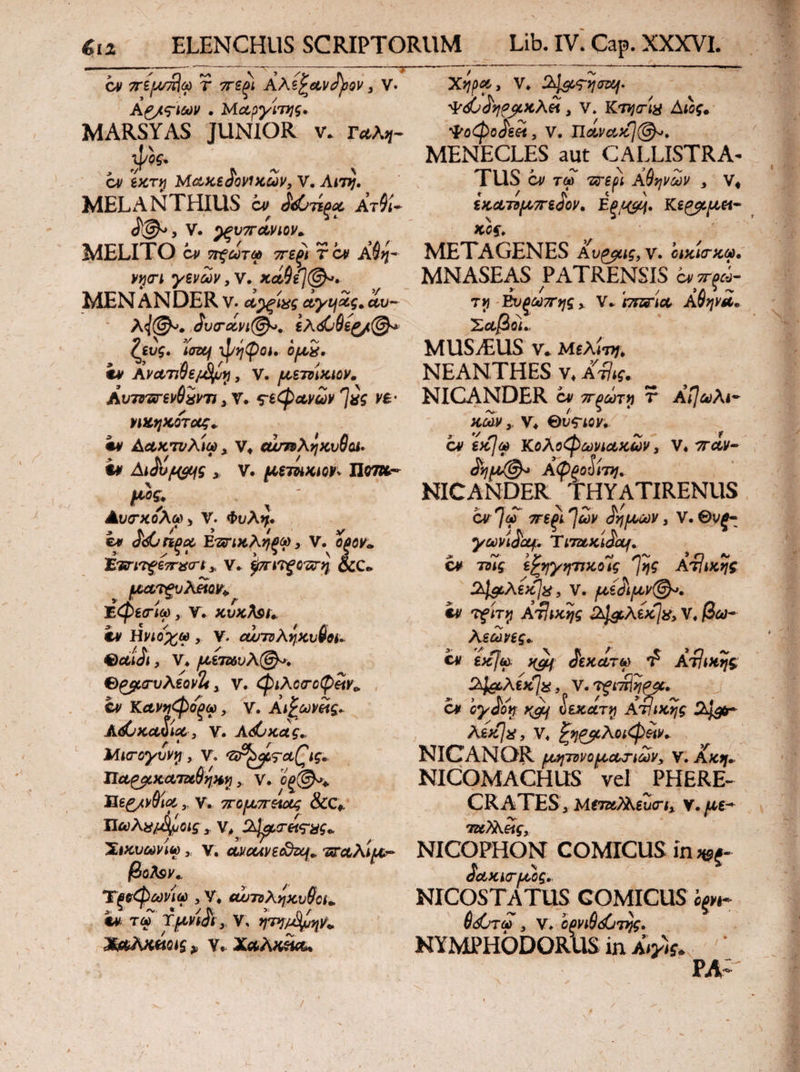 612 ELENCHUS SCRIPTORUM Lib. IV. Cap. XXXVI.
ἐν πέμπτῳ τ περὶ Ἀλεξανδρον, v.
Ἀρκτίων. Μαργίτης.
MARSYAS JUNIOR v. Γαλή-
ψος.
ἐν ἕκτῃ Μακεδονικῶν, v. Λιτή.
MELANTHIUS ἐν δευτέρα Ἀτθί-
δος, v. γρυπάνιον.
MELITO ἐν πρώτῳ περὶ τ ἐν Ἀθή-
νησι γενῶν, v. κάθετος.
MENANDER v. ἀγρίους ἀγυιάς. αὐ-
λ. δυσάνιος. ἐλευθέριος
ζεύς. ἴσαι ψῆφοι. ὁμοῦ.
ἐν Ἀνατιθεμένῃ, v. μετοίκιον.
Αὐτοπενθοῦντι, v. στεφανῶν τοὺς νε-
νικηκότας.
ἐν Δακτυλίῳ, v. αὐτολήκυθοι.
ἐν Διδύμαις, v. μετοίκιον. Ποτα-
μός.
Δυσκόλῳ, v. Φυλή.
ἐν δευτέρα Ἐπικλήρῳ, v. ὅρον.
Ἐπιτρέπουσι, v. ἐπιτροπὴ &c.
ματρυλεῖον.
Ἐφεσίῳ, v. κύκλοι.
ἐν Ἡνιόχῳ, v. αὐτολήκυθοι.
Θαΐδι, v. μέταυλος.
Θρασυλέοντι, v. φιλοσοφεῖν.
ἐν Κανηφόρῳ, v. Αἰξωνεῖς.
Λευκαδία, v. Λευκάς.
Μισογύνῃ, v. παράστασις.
Παρακαταθήκῃ, v. ὄρος.
Περινθία, v. πομπείας &c.
Πωλουμένοις, v. διαφείστους.
Σικυωνίῳ, v. ἀναίνεσθαι. παλίμ-
βολον.
Τροφωνίῳ, v. αὐτολήκυθοι.
ἐν τῷ Ὑμνίδι, v. ἠτημένην.
Χαλκείοις, v. Χαλκεῖα.
Χήρα, v. διαστῆσαι.
Ψευδηρακλεῖ, v. Κτησίου Διός.
Ψοφοδεεῖ, v. Πάνακτος.
MENECLES aut CALLISTRA-
TUS ἐν τῷ περὶ Ἀθηνῶν, v.
ἑκατόμπεδον. Ἑρμαῖ. Κεραμει-
κός.
METAGENES Αὔραις, v. οἰκίσκῳ.
MNASEAS PATRENSIS ἐν πρώ-
τῃ Εὐρώπης, v. ἱππία Ἀθηνᾶ.
Σαβοί.
MUSÆUS v. Μελίτη.
NEANTHES v. Ἀττις.
NICANDER ἐν πρώτῃ τ Αἰτωλι-
κῶν, v. Θύστιον.
ἐν ἕκτῳ Κολοφωνιακῶν, v. πάν-
δημος Ἀφροδίτη.
NICANDER THYATIRENUS
ἐν τῷ περὶ τῶν δήμων, v. Θυρ-
γωνίδαι. Τιτακίδαι.
ἐν τοῖς ἐξηγητικοῖς τῆς Ἀττικῆς
διαλέκτου, v. μέδιμνος.
ἐν τρίτῃ Ἀττικῆς διαλέκτου, v. βω-
λεῶνες.
ἐν ἕκτῳ καὶ δεκάτῳ τ Ἀττικῆς
διαλέκτου, v. τριττῆρα.
ἐν ὀγδόῃ καὶ δεκάτῃ Ἀττικῆς δια-
λέκτου, v. ξηραλοιφεῖν.
NICANOR μητονομασιῶν, v. Ἀκη.
NICOMACHUS vel PHERE-
CRATES, Μεταλλεῦσι, v. με-
ταλλεῖς,
NICOPHON COMICUS in κορ-
δακισμός.
NICOSTATUS COMICUS ὀρνι-
θευτῷ, v. ὀρνιθευτής.
NYMPHODORUS in Αἰγίς.
PA-